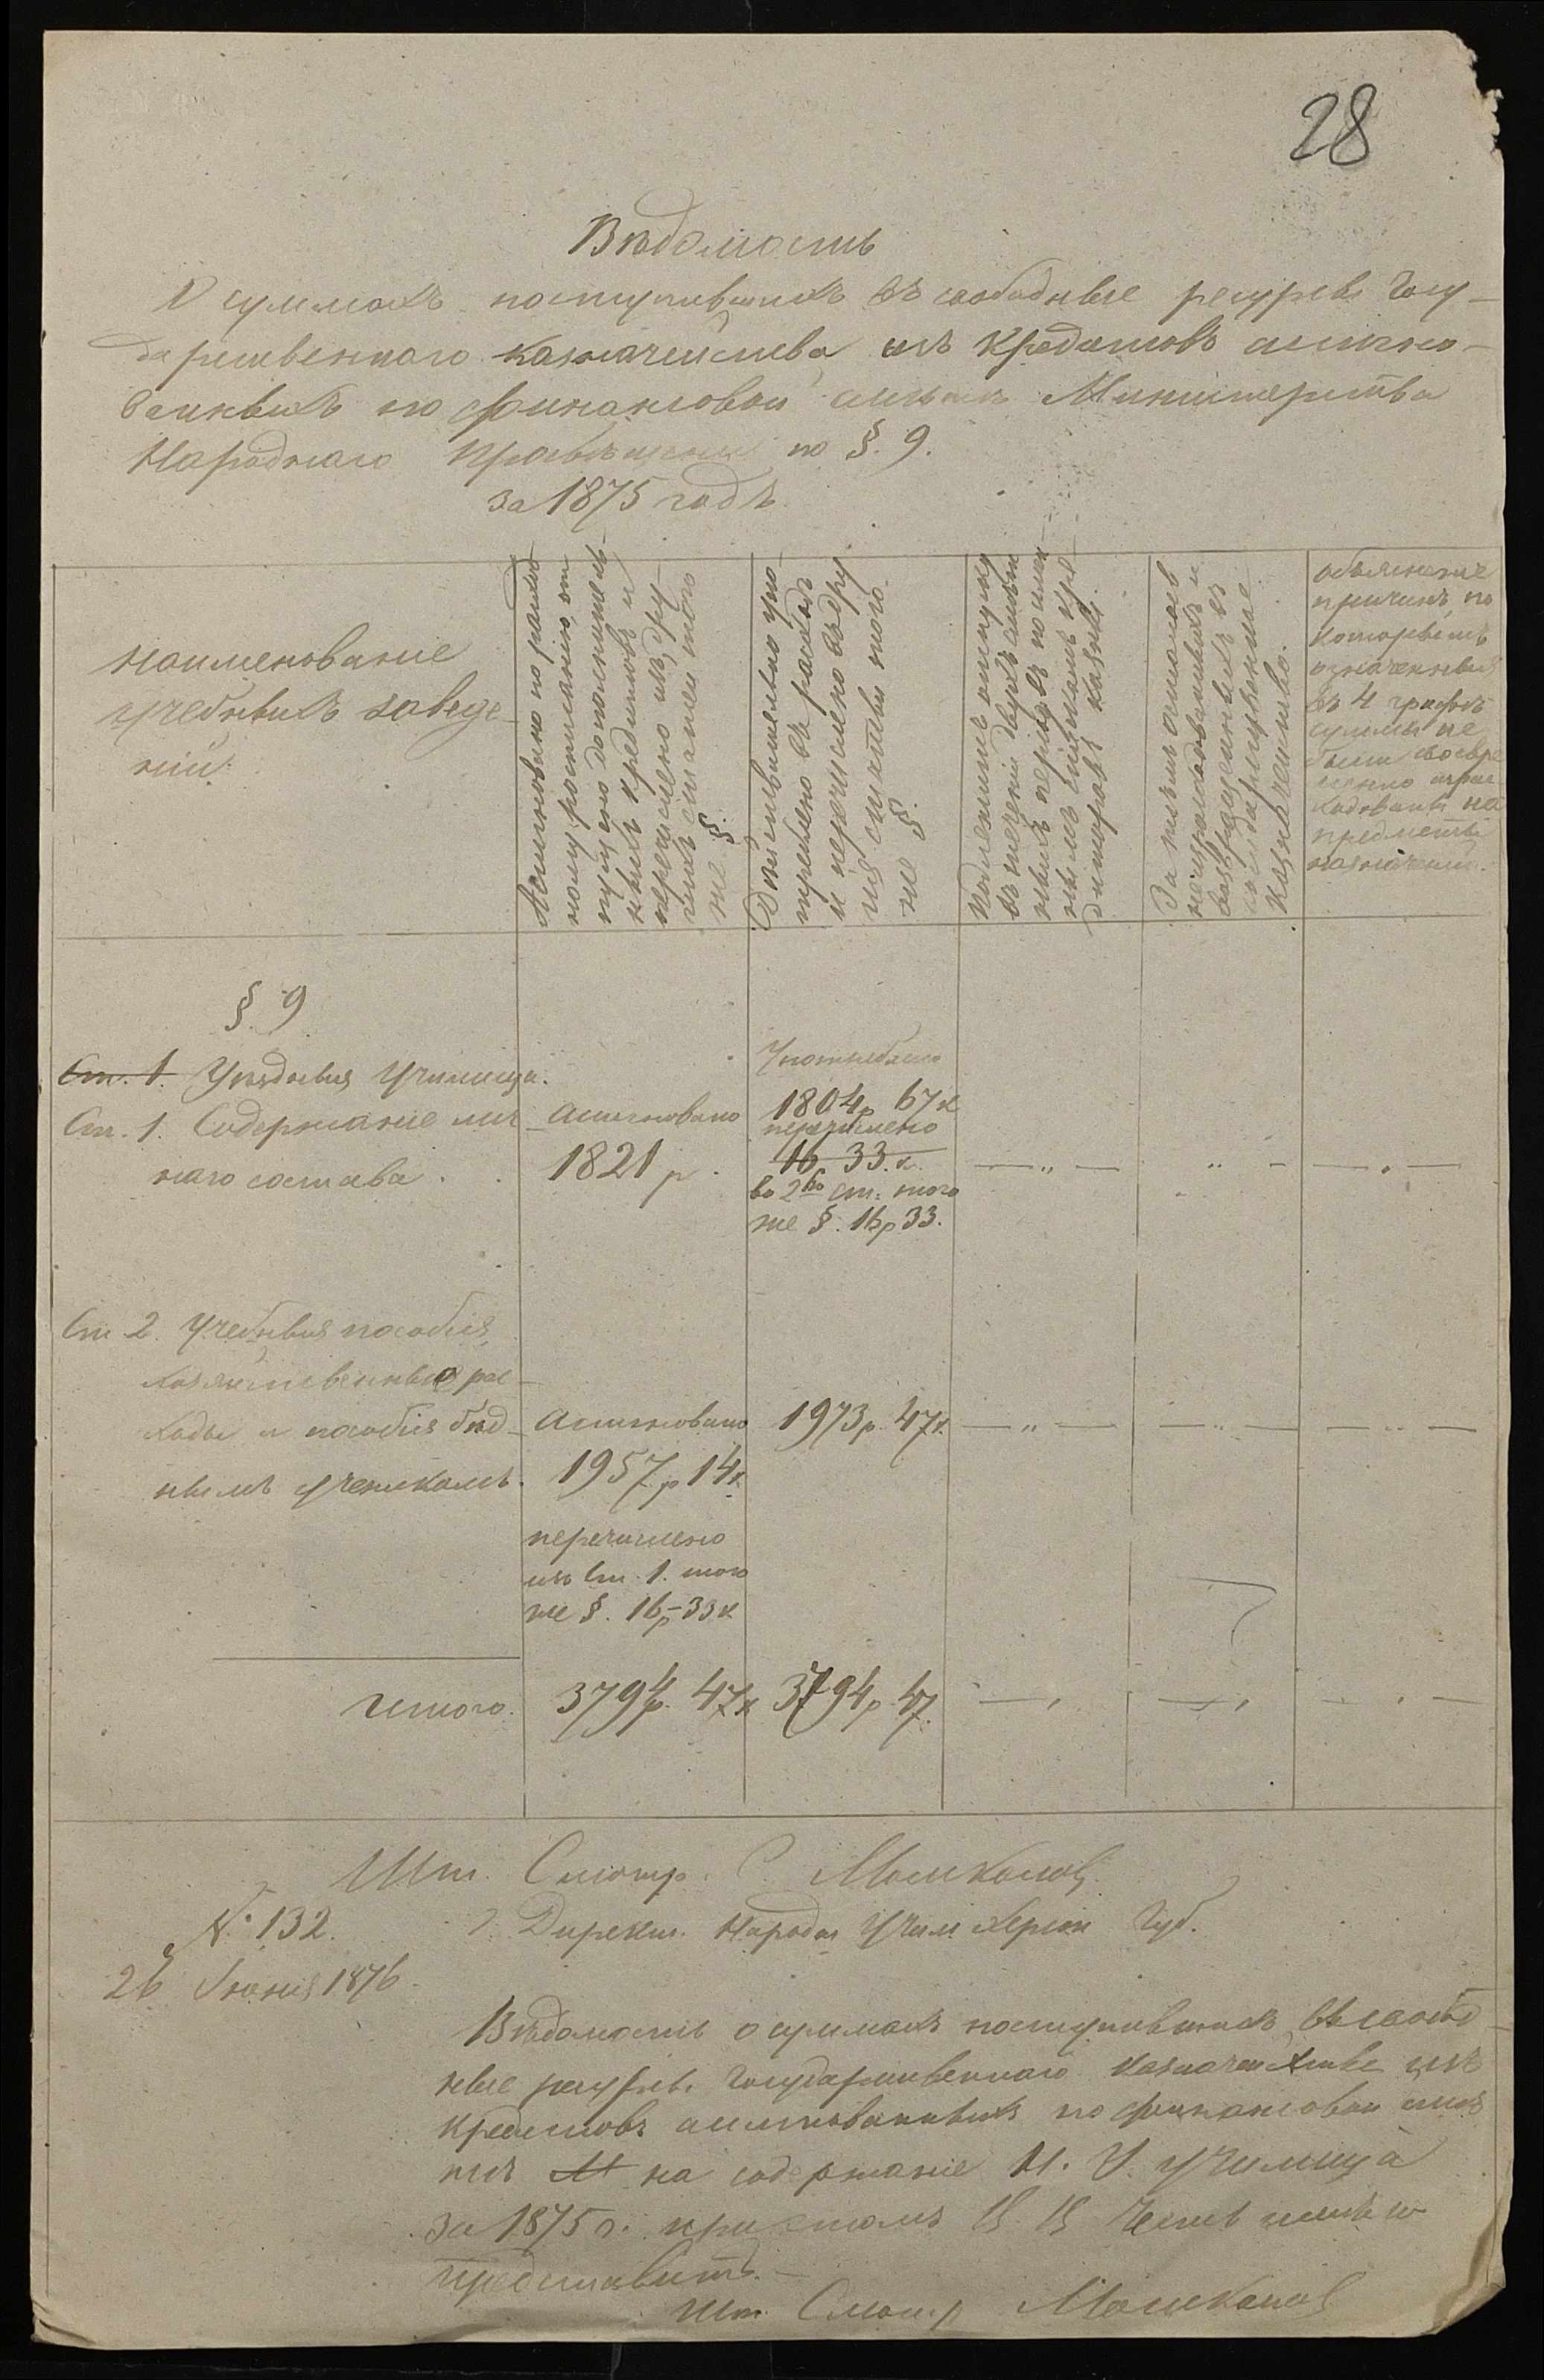 28
Вѣдомость
О суммахъ поступившихъ въ свободные ресурсы Госу-
дарственнаго Казначейства изъ кредитовъ ассигно-
ванныхъ по финансовой смѣтѣ Министерства
Народнаго Просвѣщенія по §. 9.
за 1875 годъ.
Наименованіе
учебныхъ заведе-
ній.
Ассигновано по
ному росписанію, от
пущено дополнитель-
ныхъ кредитовъ и
перечислено изъ дру-
гихъ статей того
же §.
Дѣйствительно упо-
треблено въ расходъ
и перечислено въ дру
гія статьи того
же §.
Подлежитъ отпуску
въ теченіи двухъ
ныхъ кре-
диторовъ казны.
За тѣмъ осталось
неизрасходованныхъ и
въ
Государственное
Казначейство.
объясненіе
причинъ, по
которымъ
означенныя
въ 4 графѣ
суммы не
были своевре
менно израс
ходованы на
предметы
назначенія.
§. 9
Ст. 1. Уѣздныя Училища.
Ст. 1. Содержаніе лич
наго состава.
Ассигновано
1821 р.
Употреблено
1804 р 67 к
перечислено
16 33. к.
во 2ю ст. того
же §. 16 р 33.
— „ —
„ -
— „ —
Ст 2. Учебныя пособія,
хозяйственные рас-
ходы и пособія бѣд-
нымъ ученикамъ.
Ассигновано
1957 р 14 к.
перечислено
изъ Ст. 1. того
же §. 16 р - 33 к
1973 р. 47 к.
— „ —
— „ —
— „ —
Итого.
3794 р. 47 к
3794 р. 47.
— „
— „
— „ —
Шт. Смотр. Машкановъ
№ 132.
26 Іюня 1876.
Г. Директ. Народн Учил Херсон Губ.
Вѣдомость о суммахъ поступившихъ въ свобод-
ные ресурсы Государственнаго Казначейства изъ
кредитовъ ассигнованныхъ по финансовой смѣ
тѣ М на содержаніе Н. У. училища
за 1875 г. при этомъ В. В. Честь имѣю
представить.—
Шт. Смотр Машкановъ